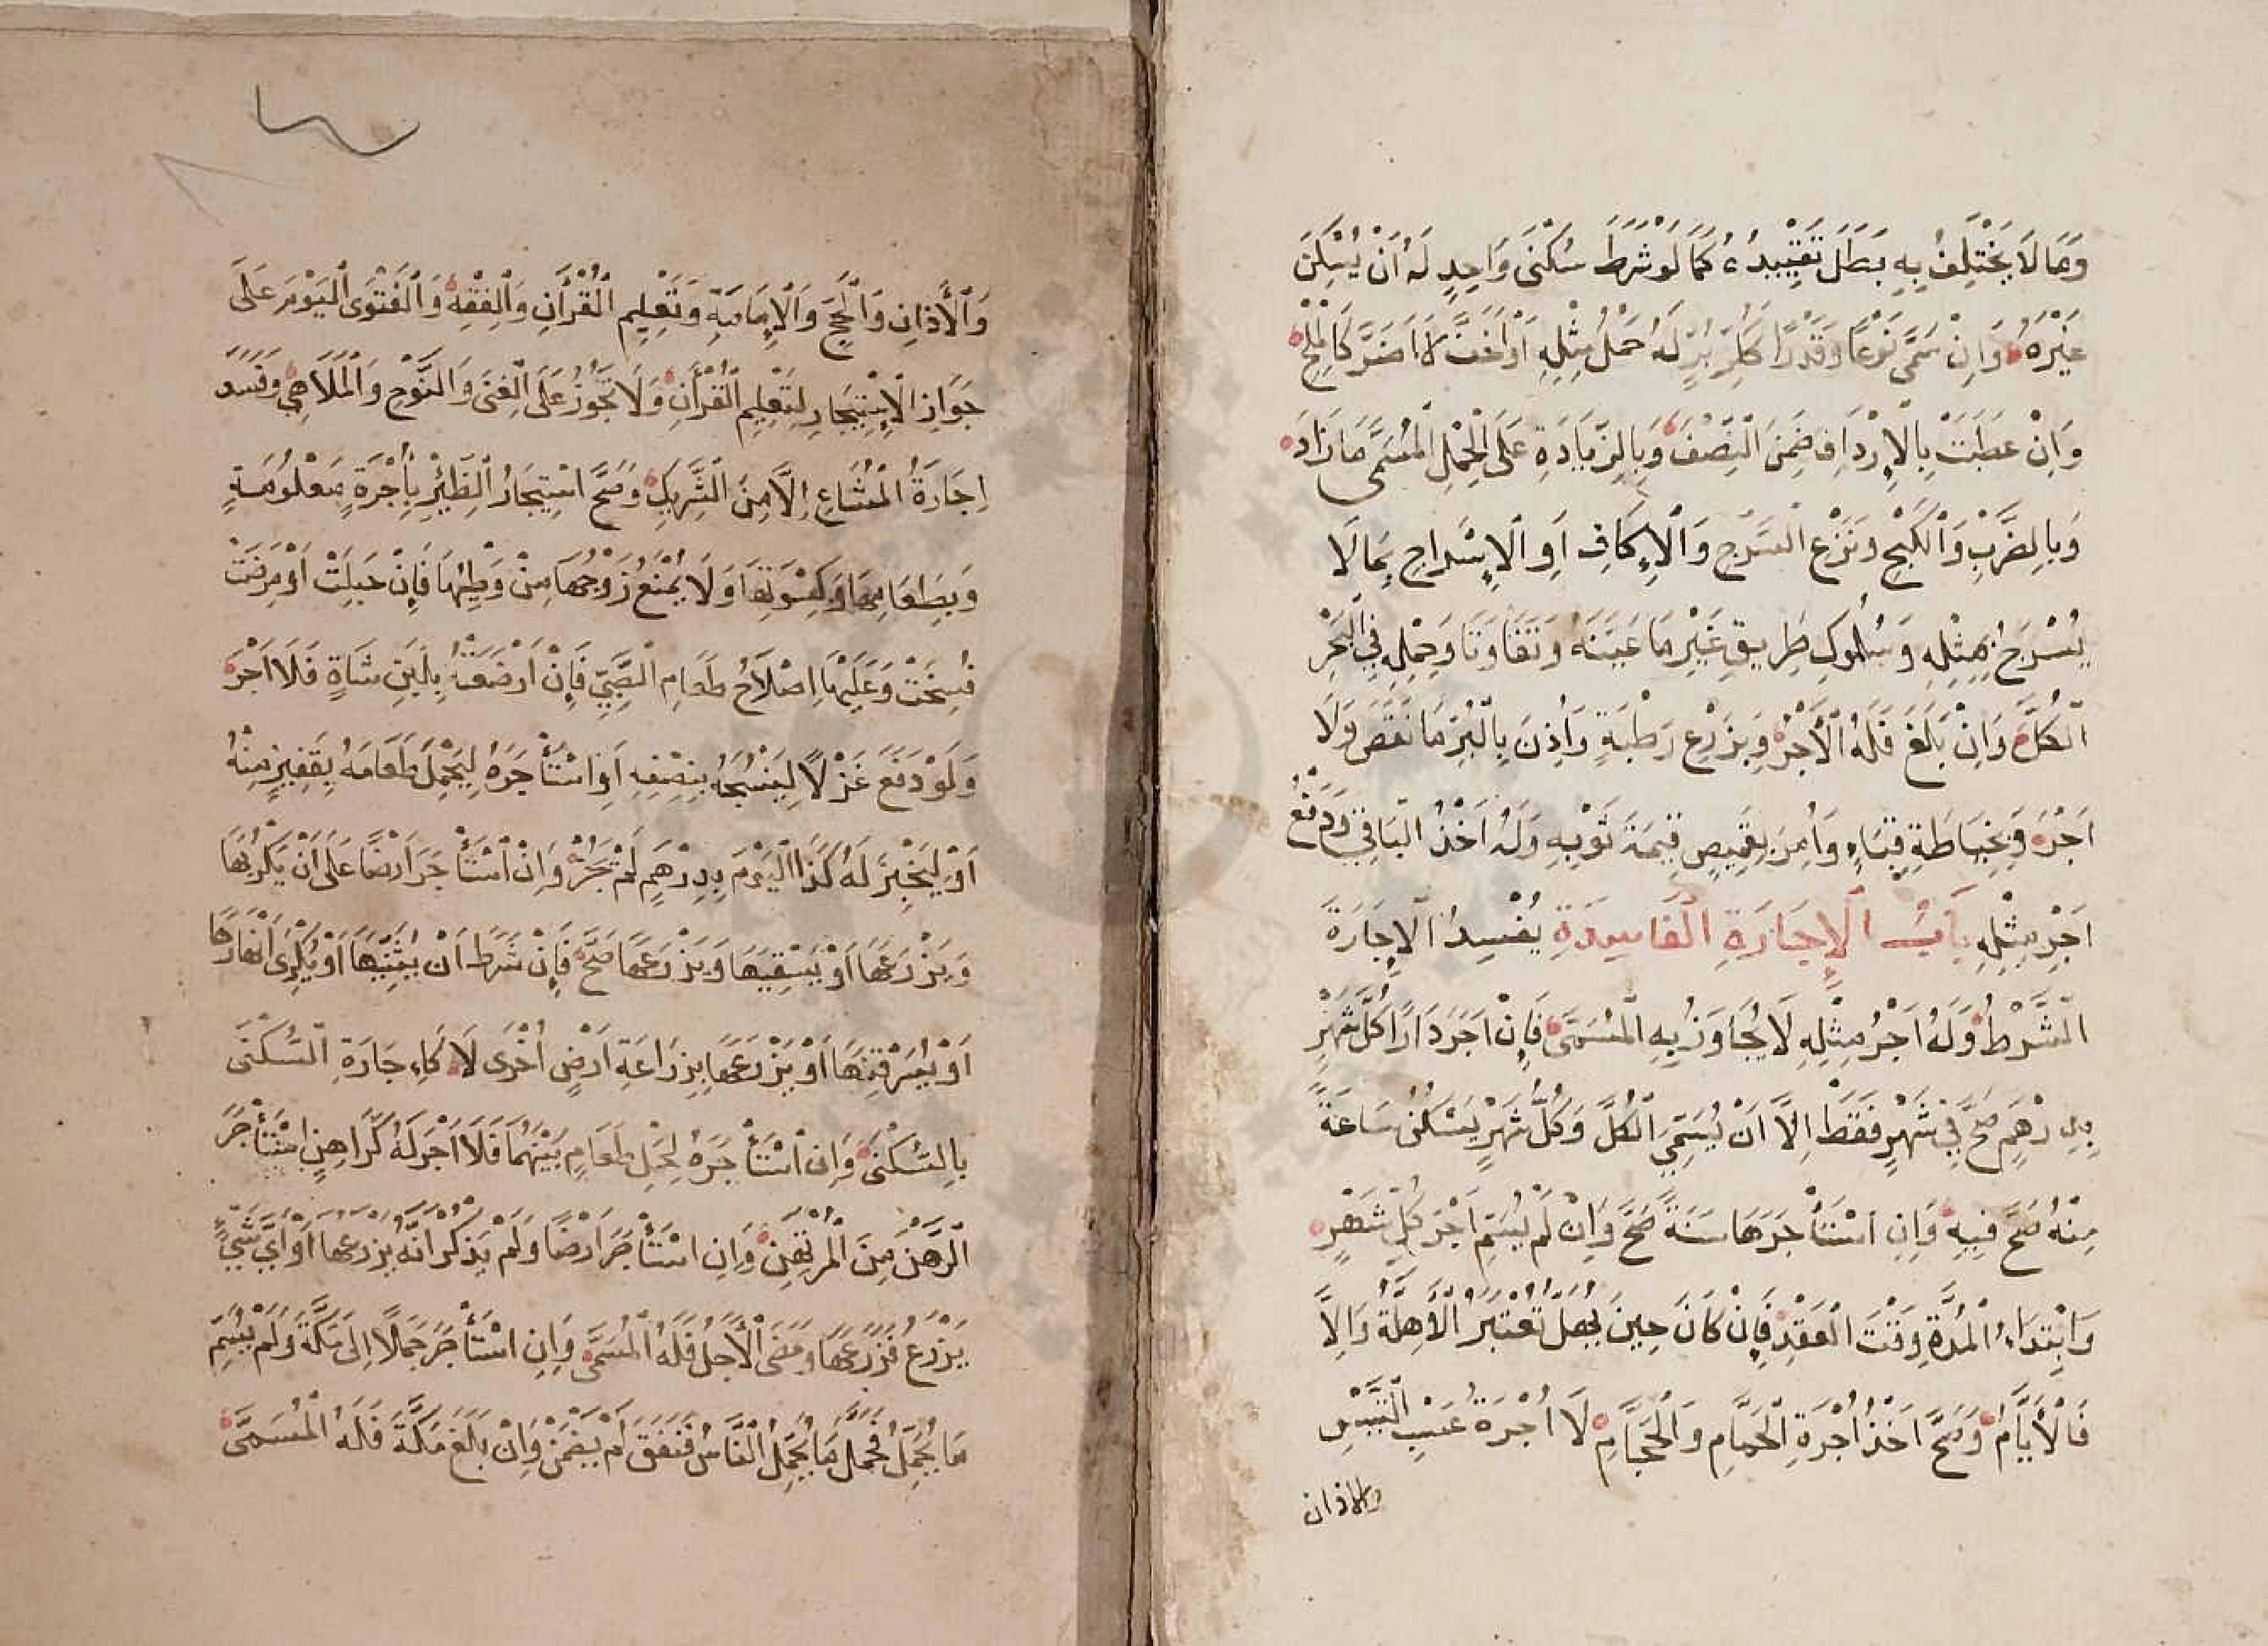 وَمَا لَا يَخْتَلِفُ بِهِ بَطَلَ تَقْيِيدُهُ كَمَا لَوْ شَرَطَ سُكْنَى وَاحِدٍ لَهُ أَنْ يُسْكِنَ
غَيْرَهُ وَاِنْ سَمَّى نَوْعًا وَقَدْرًا كَكُرِّ بُرٍّ لَهُ حَمْلُ مِثْلِهِ اَوْ اَخَفَّ لَا اَضَرَّ كَالْمِلْحِ
وَاِنْ عَطَبَتْ بِالْاِرْدَافِ ضَمِنَ النِّصْفَ وَبِالزِّيَادَةِ عَلَى الْحِمْلِ الْمُسَمَّى مَا زَادَ
وَبِالضَّرْبِ وَالْكَبْحِ وَنَزْعِ السَّرْجِ وَالْاِكَافِ اَوِ الْاِسْرَاجِ بِمَا لَا
يُسْرَجُ بِمِثْلِهِ وَسُلُوكِ طَرِيقٍ غَيْرِ مَا عَيَّنَهُ وَتَفَاوَتَا وَحَمْلِهِ فِي الْبَحْرِ
الْكُلَّ وَاِنْ بَلَغَ فَلَهُ الْأَجْرُ وَبِزَرْعِ رَطْبَةٍ وَاُذِنَ بِالْبُرِّ مَا نَقَصَ وَلَا
اَجْرَ وَبِخِيَاطَةِ قَبَاءٍ وَاُمِرَ بِقَمِيصٍ قِيمَةَ ثَوْبِهِ وَلَهُ اَخْذُ الْبَاقِي وَدَفْعُ
اَجْرِ مِثْلِهِ بَابُ الْاِجَارَةِ الْفَاسِدَةِ يُفْسِدُ الْاِجَارَةَ
الشَّرْطُ وَلَهُ اَجْرُ مِثْلِهِ لَا يُجَاوَزُ بِهِ الْمُسَمَّى فَاِنْ اَجَرَ دَارًا كُلَّ شَهْرٍ
بِدِرْهَمٍ صَحَّ فِي شَهْرٍ فَقَطْ اِلَّا اَنْ يُسَمِّيَ الْكُلَّ وَكُلُّ شَهْرٍ يَسْكُنُ سَاعَةً
مِنْهُ صَحَّ فِيهِ وَاِنِ اسْتَأْجَرَهَا سَنَةً صَحَّ وَاِنْ لَمْ يُسَمِّ اَجْرَ كُلِّ شَهْرٍ
وَابْتِدَاءُ الْمُدَّةِ وَقْتَ الْعَقْدِ فَاِنْ كَانَ حِينَ يُهَلُّ تُعْتَبَرُ الْأَهِلَّةُ وَاِلَّا
فَالْأَيَّامُ وَصَحَّ اَخْذُ اُجْرَةِ الْحَمَّامِ وَالْحَجَّامِ لَا اُجْرَةُ عَسْبِ التَّيْسِ
والاذان
وَالْأَذَانِ وَالْحَجِّ وَالْاِمَامَةِ وَتَعْلِيمِ الْقُرْأٰنِ وَالْفِقْهِ وَالْفَتْوَى الْيَوْمَ عَلَى
جَوَازِ الْاِسْتِيجَارِ لِتَعْلِيمِ الْقُرْأٰنِ وَلَا تَجُوزُ عَلَى الْغِنَى وَالنَّوْحِ وَالْمَلَاهِي وَفَسَدَ
اِجَارَةُ الْمُشَاعِ اِلَّا مِنَ الشَّرِيكِ وَصَحَّ اسْتِيجَارُ الظِّئْرِ بِأُجْرَةٍ مَعْلُومَةٍ
وَبِطَعَامِهَا وَكِسْوَتِهَا وَلَا يُمْنَعُ زَوْجُهَا مِنْ وَطْئِهَا فَاِنْ حَبِلَتْ اَوْ مَرِضَتْ
فُسِخَتْ وَعَلَيْهَا اِصْلَاحُ طَعَامِ الصَّبِيِّ فَاِنْ اَرْضَعَتْهُ بِلَبَنِ شَاةٍ فَلَا اَجْرَ
وَلَوْ دَفَعَ غَزْلًا لِيَنْسُجَهُ بِنِصْفِهِ اَوِ اسْتَأْجَرَهُ لِيَحْمِلَ طَعَامَهُ بِقَفِيزٍ مِنْهُ
اَوْ لِيَخْبِزَ لَهُ كَذَا الْيَوْمَ بِدِرْهَمٍ لَمْ تَجُزْ وَاِنْ اسْتَأْجَرَ اَرْضًا عَلَى اَنْ يَكْرُبَهَا
وَيَزْرَعَهَا اَوْ يَسْقِيَهَا وَيَزْرَعَهَا صَحَّ فَاِنْ شَرَطَ اَنْ يُثَنِّيَهَا اَوْ يُكْرِىَ اَنْهَارَهَا
اَوْ يُسَرْقِنَهَا اَوْ يَزْرَعَهَا بِزِرَاعَةِ اَرْضٍ اُخْرَى لَا كَاِجَارَةِ السُّكْنَى
بِالسُّكْنَى وَاِنْ اسْتَأْجَرَهُ لِحَمْلِ طَعَامٍ بَيْنَهُمَا فَلَا اَجْرَ لَهُ كَرَاهِنٍ اسْتَأْجَرَ
الرَّهْنَ مِنَ الْمُرْتَهِنِ وَاِنِ اسْتَأْجَرَ اَرْضًا وَلَمْ يَذْكُرْ اَنَّهُ يَزْرَعُهَا اَوْ اَىَّ شَىْءٍ
يَزْرَعُ فَزَرَعَهَا وَمَضَى الْأَجَلُ فَلَهُ الْمُسَمَّى وَاِنِ اسْتَأْجَرَ جَمَلًا اِلَى مَكَّةَ وَلَمْ يُسَمِّ
مَا يُحْمَلُ فَحَمَلَ مَا يَحْمِلُ النَّاسُ فَنَفَقَ لَمْ يَضْمَنْ وَاِنْ بَلَغَ مَكَّةَ فَلَهُ الْمُسَمَّى